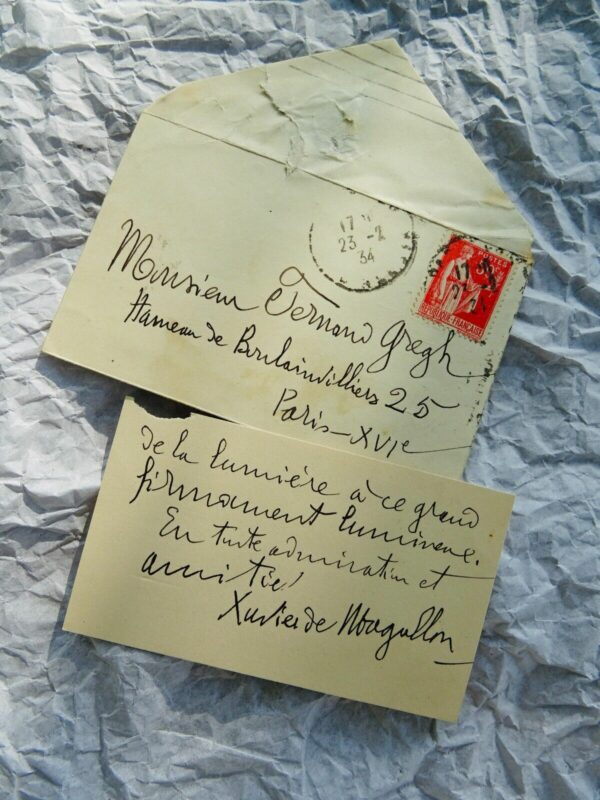 17 30
23 -2
34
POSTES
17 30
RÉPUBLIQUE FRANÇAISE
Monsieur Fernand Gregh
Hameau de Boulainvilliers 25
Paris-XVIe
de la lumière à ce grand
firmament lumineux.
En toute admiration et
amitié!
Xavier de Magallon